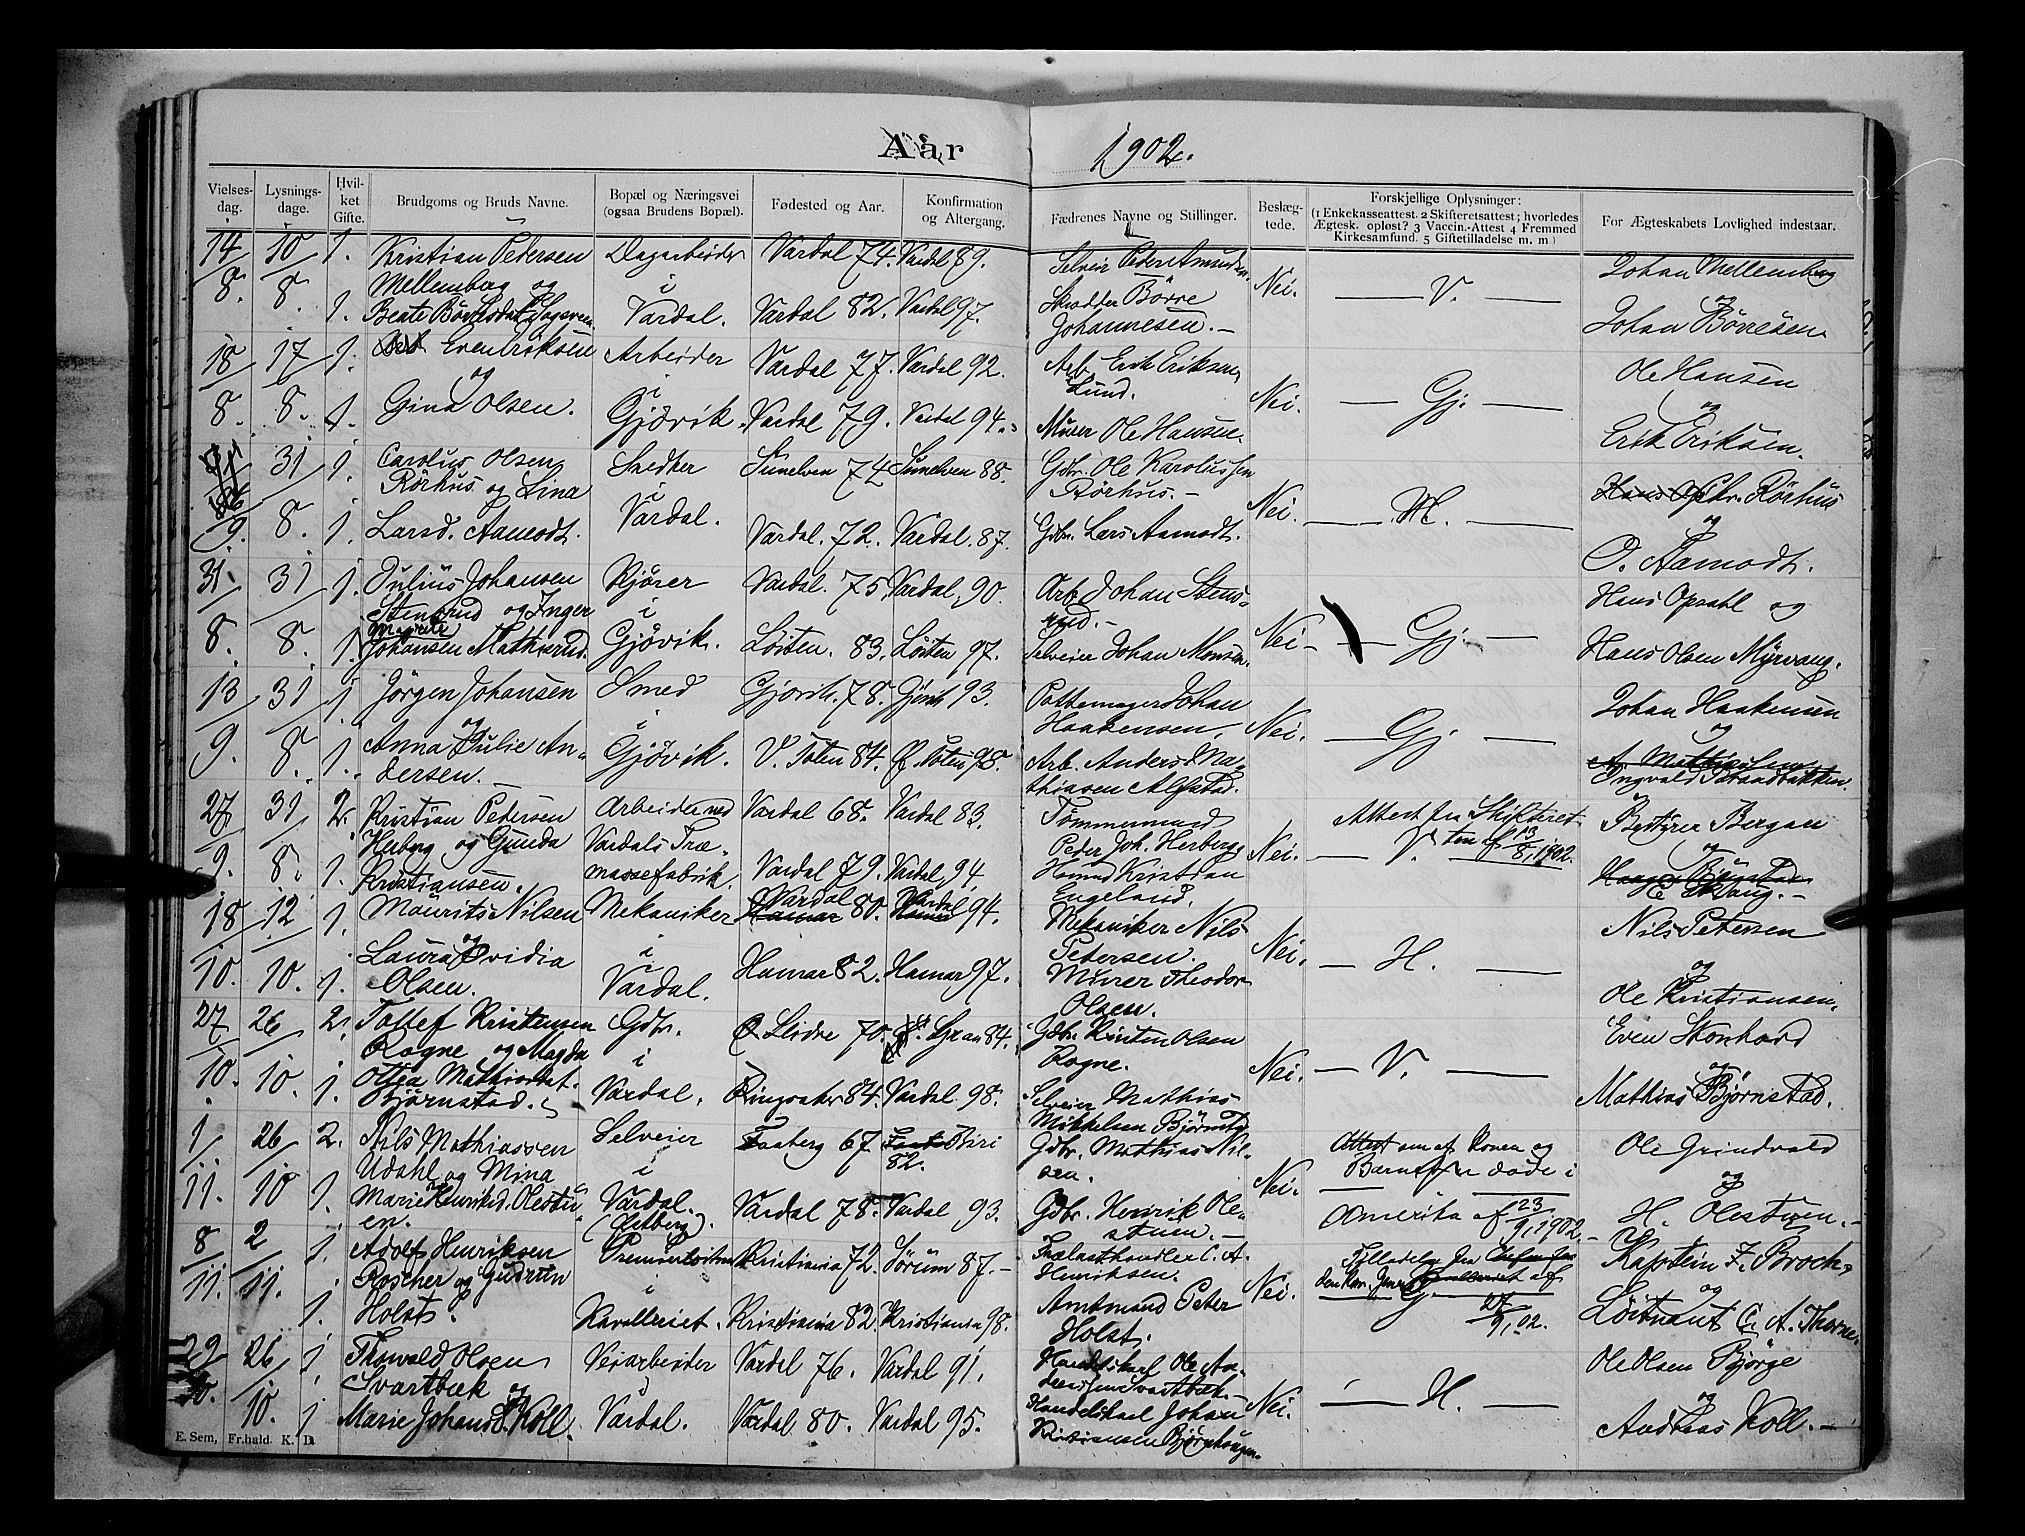 Aar 1902.
Vielses-dag. Lysnings-dage. Hvil-ket Gifte. Brudgoms og Bruds Navne. Bopæl og Næringsvei (ogsaa Brudens Bopæl). Fødested og Aar. Konfirmation og Altergang. Fædrenes Navne og Stillinger. Beslæg-tede. Forskjellige Oplysninger: (1 Enkekasseattest. 2 Skifteretsattest; hvorledes Ægtesk. opløst? 3 Vaccin.-Attest 4 Fremmed Kirkesamfund. 5 Giftetilladelse m. m.) For Ægteskabets Lovlighed indestaar.
14 10 1. Kristian Pedersen Dagarbeider Vardal 74. Vardal 89. Selveier Peder Amundsen Johan Mellemberg
8. 8. Mellemberg og i Skrædder Børre Nei. — V. — og
1. Beate Vardal. Vardal 82. Vardal 97. Johannesen. — Johan Børresen
18 17 1. Even Eriksen Arbeider Vardal 77. Vardal 92. Arb. Erik Eriksen Ole Hansen
og i Lund. Nei. — Gj. — og
8. 8. 1. Gina Olsen. Gjøvik. Vardal 79. Vardal 94. Murer Ole Hansen. Erik Eriksen.
31 1. Carolus Olsen Snedker Sunelven 74 Sunelven 88. Gdbr. Ole Karolussen Chr. Rørhus
Rørhus og Lina i Rørhus. — Nei. — M. — og
9. 8. 1. Larsd. Aamodt. Vardal. Vardal. 72. Vardal. 87. Gdbr. Lars Aamodt. O. Aamodt.
31. 31 1. Julius Johansen Kjører Vardal. 75. Vardal. 90. Arb. Johan Stens- Hans Opsahl og
Stensrud og Inger i rud. — Nei — Gj. —
Margrete
8. 8. 1. Johansen Mathisrud. Gjøvik. Løiten. 83. Løiten 97. Selveier Johan Monsen Hans Olsen Myrvang.
13 31 1. Jørgen Johansen Smed Gjøvik. 78. Gjøvik 93. Pottemager Johan Johan Haakensen
og i Haakensen. Nei. — Gj — og
9. 8. 1. Anna Julie An- Gjøvik. V. Toten 84. Ø. Toten 98. Arb. Anders Ma- A. Mathisen
dersen. — thiasen Alfstad. Ingvald Strandbakken.
27 31 2. Kristian Pedersen Arbeider ved Vardal 68. Vardal 83. Tømmermand Attest fra Skifteret- Bestyrer Bergan
Herberg og Gunda Vardals Træ- Peder Joh. Herberg Nei. — V. — ten af 13/8, 1902. og
9. 8. 1. Kristiansen. massefabrik. Vardal 79. Vardal 94 Kristian
Engeland. Skaug. —
18 12 1. Maurits Nilsen Mekaniker Vardal Hamar 80. Vardal Hamar 94. Mekaniker Nils Nils Petersen
og i Petersen. Nei. — H. — og
10. 10. 1. Laura Ovidia Vardal. Hamar 82. Hamar 97. Murer Theodor Ole Kristiansen.
Olsen. Olsen.
27 26 2. Tollef Kristensen Gdbr. Ø. Slidre 70. Gran 84. Gdbr. Kristen Olsen Even Stenhard
Rogne og Magda i Rogne. Nei. — V. — og
10. 10. 1. Mathiasdat. Vardal. Ringsaker 84. Vardal 98. Selveier Mathias Mathias Bjørnstad.
Bjørnstad. Mikkelsen Bjørnstad
1 26 2. Nils Mathiassen Selveier Faaberg 67 Biri 82. Gdbr. Mathias Nil- Attest om af Konen og Ole Grindvald
Udahl og Mina i sen. Nei. døde i og
11. 10 1. Marie Henriksd. Olestu- Vardal. Vardal 78. Vardal 93. Gdbr. Henrik Ole- Amerika af 23/9, 1902. — H. Olestuen. —
en. stuen. —
8 2 1. Adolf Henriksen Premierløitnant Kristiania 72. Sørum 87. — Trælasthandler C. A. Tilladelse fra Kaptein F. Broch
11. 11. Roscher og Gudrun i Henriksen. Nei. G. og
1. Holst. Kavalleriet. Kristiania 82. Kristiania 98. Amtmand Peter 27/9, 02. Løitnant C. A. Thorne
Holst.
29 26 1. Thorvald Olsen Veiarbeider Vardal 76. Vardal 91. Ole An- Ole Olsen Bjørge
Svartbæk og i dersen Svartbæk. — Nei. — H. — og
10. 10. 1 Marie Johansd. Koll. Vardal. Vardal 80. Vardal 95. Johan Andreas Koll. —
Kristiansen
E. Sem, Fr.hald. K. D.